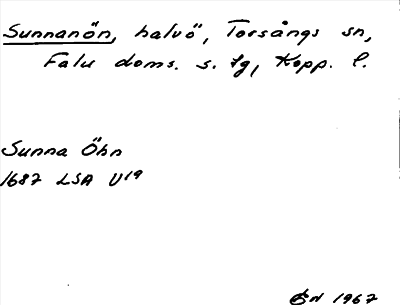 Sunnanön, halvö, Torsångs sn,
Falu doms. s. tg, Kopp. l.
Sunna Öhn
1687 LSA U19
ÖN 1967